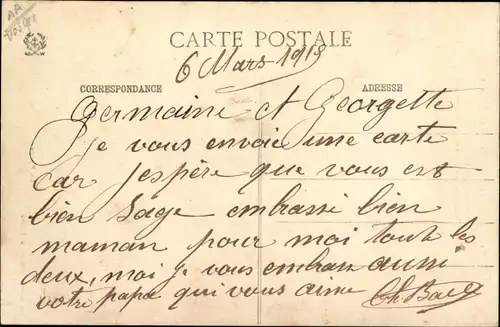 CARTE POSTALE
6 Mars 1915
CORRESPONDANCE
ADRESSE
Germaine et Georgette
je vous envoie une carte
car j'espère que vous est
bien sage embrassé bien
maman pour moi tout les
deux, moi je vous embrass aussi
votre papa qui vous aime